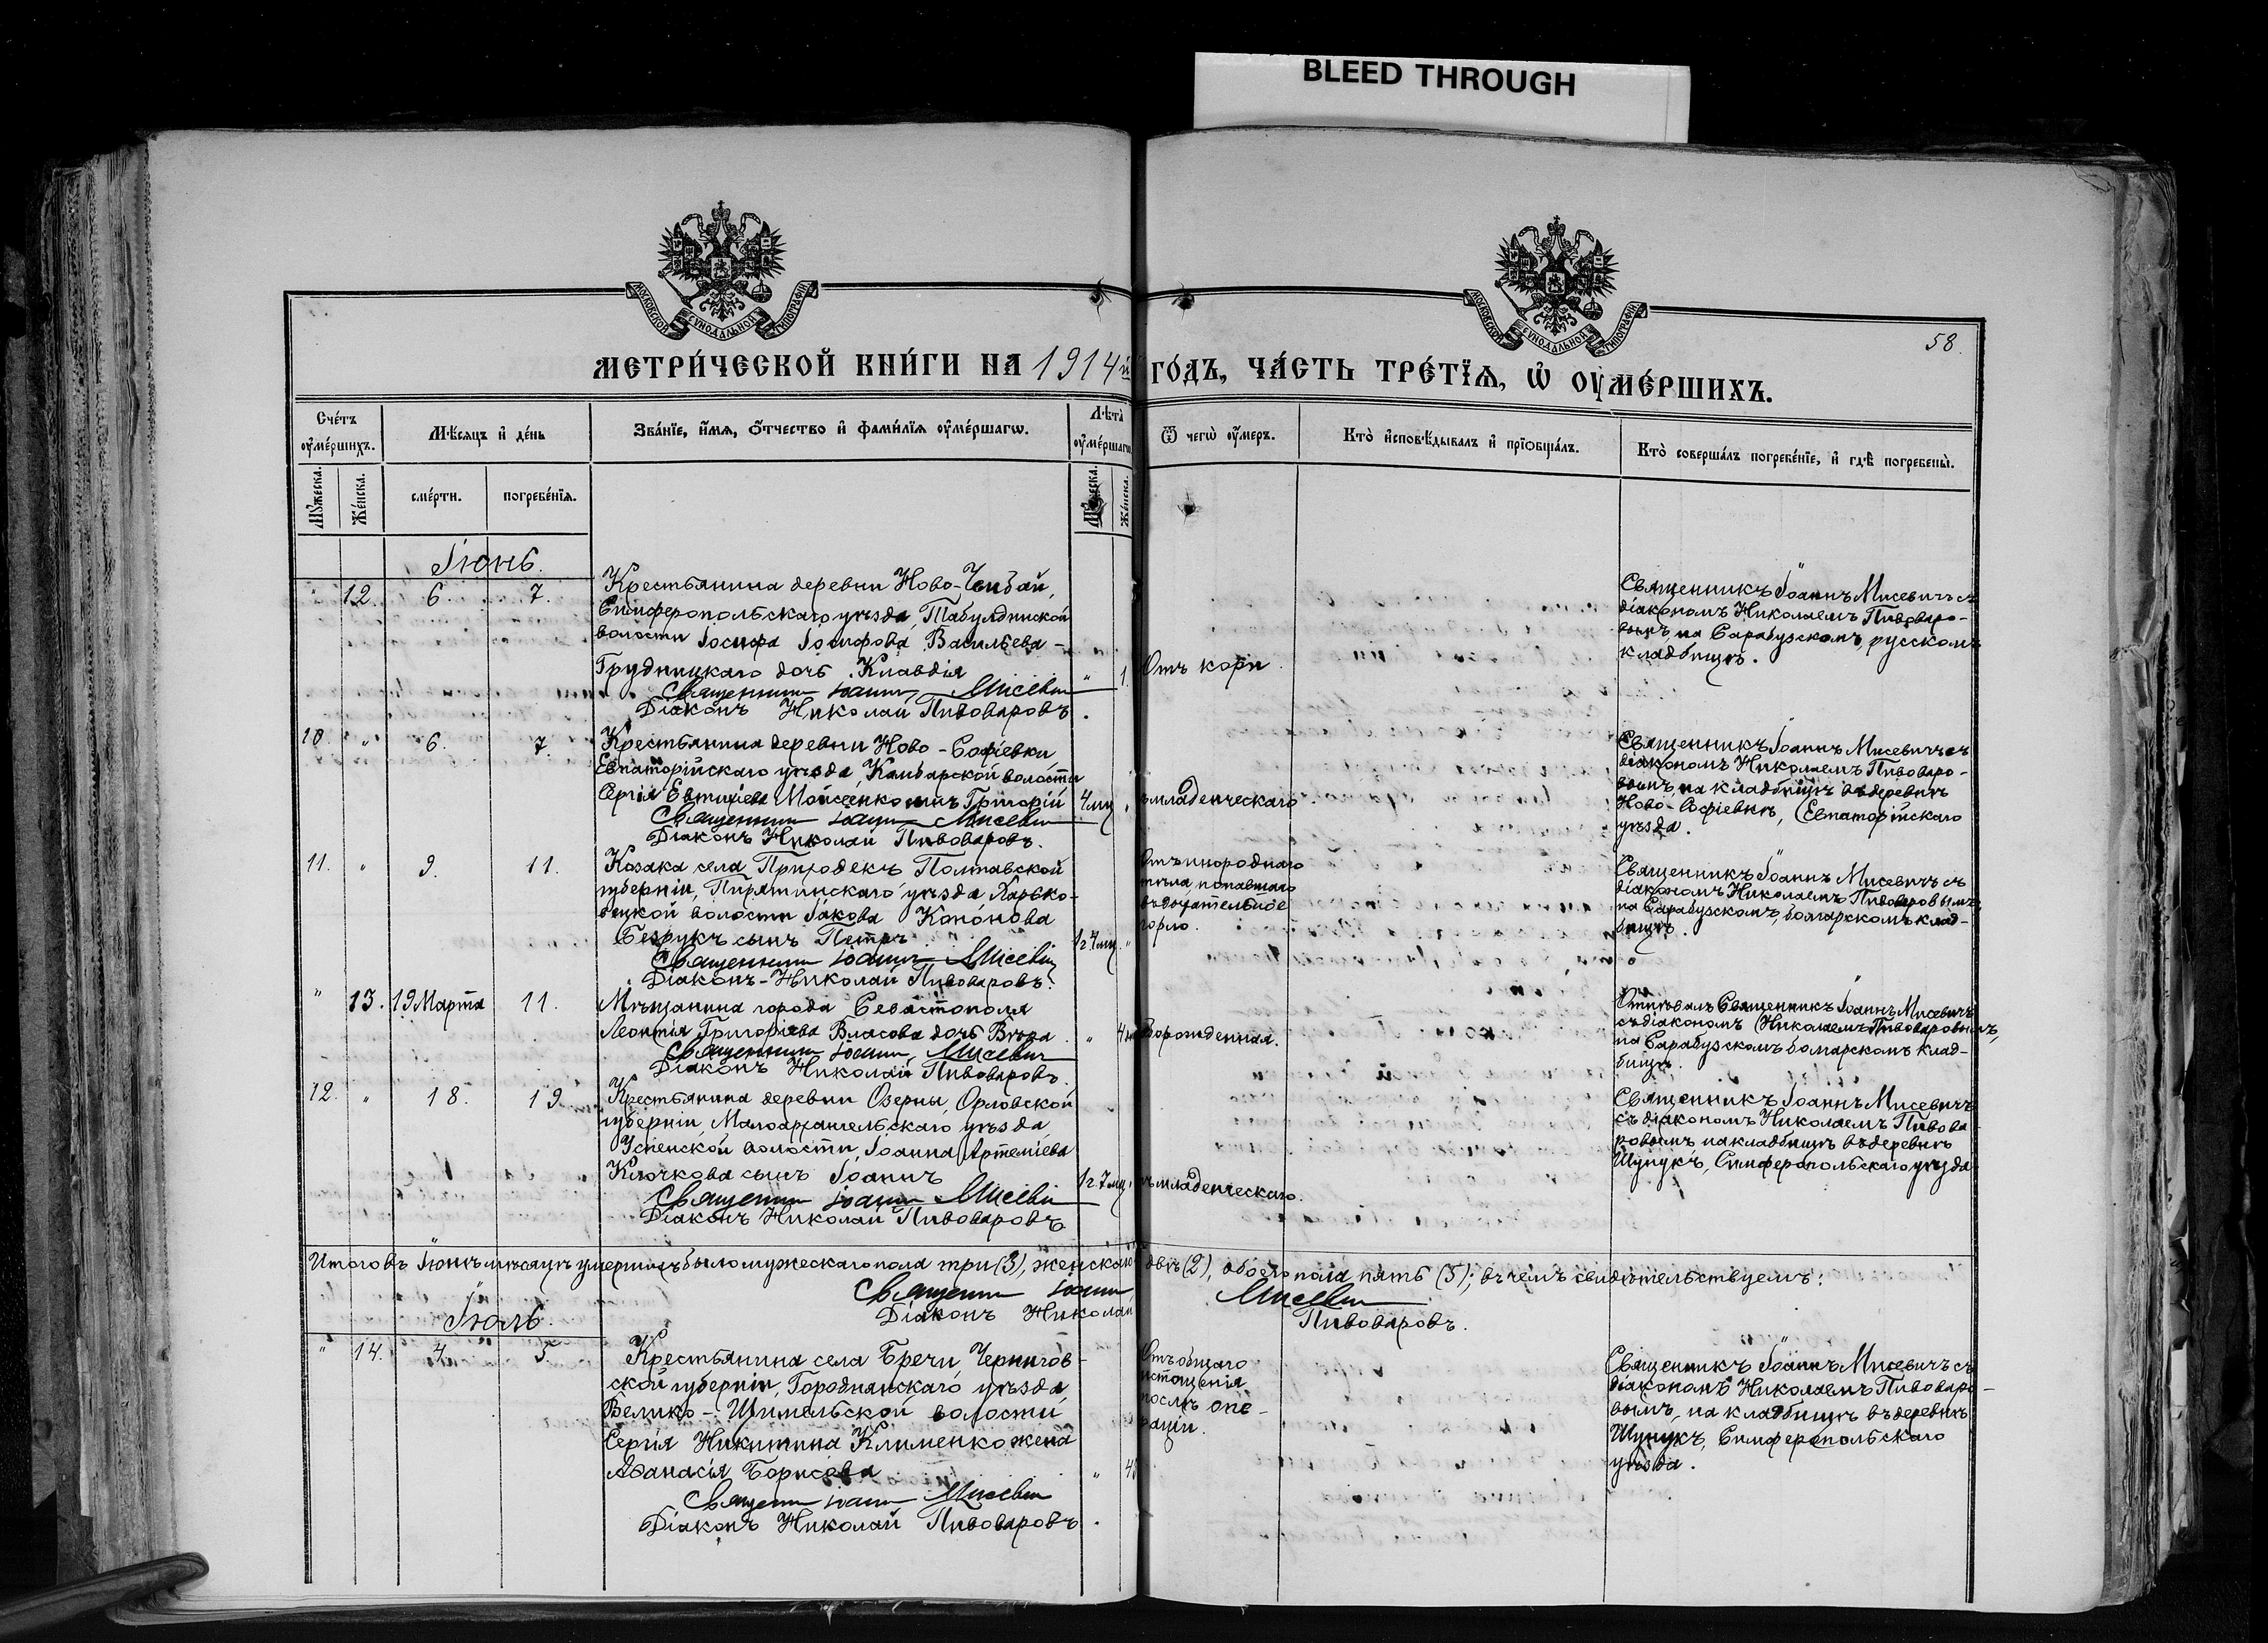 BLEED THROUGH
МОСКОВСКОЙ СѴНОДАЛЬНОЙ ТИПОГРАФІИ
МОСКОВСКОЙ СѴНОДАЛЬНОЙ ТИПОГРАФІИ
58.
МЕТРИ́ЧЕСКОЙ КНИ́ГИ НА 1914й ГО́ДЪ, ЧА́СТЬ ТРЕ́ТЇѦ, Ѡ҆ ОУ҆МЕ́РШИХЪ.
Сче́тъ оу҆ме́ршихъ.
Мѣ́сяцъ и҆ де́нь
Зва́нїе, и҆́мѧ, ѻ҆́тчество и҆ фами́лїѧ оу҆ме́ршагѡ.
Лѣ́та оу҆ме́ршагѡ
Ѿ чегѡ̀ оу҆́меръ.
Кто̀ и҆сповѣ́дывалъ и҆ прїѡбща́лъ.
Кто̀ соверша́лъ погребе́нїе, и҆ гдѣ̀ погребены̀.
Мꙋ́жеска.
Же́нска.
сме́рти.
погребе́нїѧ.
Мꙋ́жеска.
Же́нска.
Іюнь.
" 12. 6. 7.
Крестьянина деревни Ново-Чибай,
Симферопольскаго уѣзда, Табулдинской
волости Іосифа Іосифова Васильева-
Грудницкаго дочь Клавдія " 1.
Священникъ Іоаннъ Мисевичъ
Діаконъ Николай Пивоваровъ.
Отъ кори
Священникъ Іоаннъ Мисевичъ съ
діакономъ Николаемъ Пивоваро-
вымъ, на Сарабузскомъ русскомъ
кладбищѣ.
10. " 6. 7.
Крестьянина деревни Ново-Софіевки,
Евпаторійскаго уѣзда, Камбарской волости
Сергія Евтихіева Мойсеенко сынъ Григорій 4 мц "
Священникъ Іоаннъ Мисевичъ
Діаконъ Николай Пивоваровъ.
младенческаго
Священникъ Іоаннъ Мисевичъ съ
діакономъ Николаемъ Пивоваро-
вымъ, на кладбищѣ въ деревнѣ
Ново-Софіевкѣ, Евпаторійскаго
уѣзда.
11. " 9. 11.
Козака села Полтавской
губерніи, Пирятинскаго уѣзда, Харько-
вецкой волости Іакова Кононова
Безрукъ сынъ Петръ 1 г. 4 мц. "
Священникъ Іоаннъ Мисевичъ
Діаконъ-Николай Пивоваровъ.
Отъ инороднаго
тѣла, попавшаго
въ дыхательное
горло.
Священникъ Іоаннъ Мисевичъ съ
діакономъ Николаемъ Пивоваровымъ,
на Сарабузскомъ, болгарскомъ клад-
бищѣ.
" 13. 19 Марта 11.
Мѣщанина города Севастополя
Леонтія Григоріева Власова дочь Вѣра "
Священникъ Іоаннъ Мисевичъ
Діаконъ Николай Пивоваровъ.
Отпѣвалъ Священникъ Іоаннъ Мисевичъ
съ діакономъ Николаемъ Пивоваровымъ,
на Сарабузскомъ болгарскомъ клад-
бищѣ.
12. " 18. 19
Крестьянина деревни Озерны, Орловской
губерніи, Малоархангельскаго уѣзда
Успенской волости, Іоанна Артеміева
Клочкова сынъ Іоаннъ 1 г. 7 мц.
Священникъ Іоаннъ Мисевичъ
Діаконъ Николай Пивоваровъ
младенческаго.
Священникъ Іоаннъ Мисевичъ
съ діакономъ Николаемъ Пивова
ровымъ на кладбищѣ въ деревнѣ
Шунукъ, Симферопольскаго уѣзда
Итого въ Іюнѣ мѣсяцѣ умершихъ было мужескаго пола три (3), женскаго двѣ (2), обоего пола пять (5); въ чемъ свидѣтельствуемъ:
Священникъ Іоаннъ Мисевичъ
Діаконъ Николай Пивоваровъ.
Іюль.
" 14. 4 5.
Крестьянина села Бречи, Чернигов-
ской губерніи, Городнянскаго уѣзда,
Велико-Щимельской волости
Сергія Никитина Клименко жена
Аѳанасія Борисова "
Священникъ Іоаннъ Мисевичъ
Діаконъ Николай Пивоваровъ.
Отъ общаго
истощенія
послѣ опе-
раціи.
Священникъ Іоаннъ Мисевичъ съ
діакономъ Николаемъ Пивоваро-
вымъ, на кладбищѣ въ деревнѣ
Шунукъ, Симферопольскаго
уѣзда.